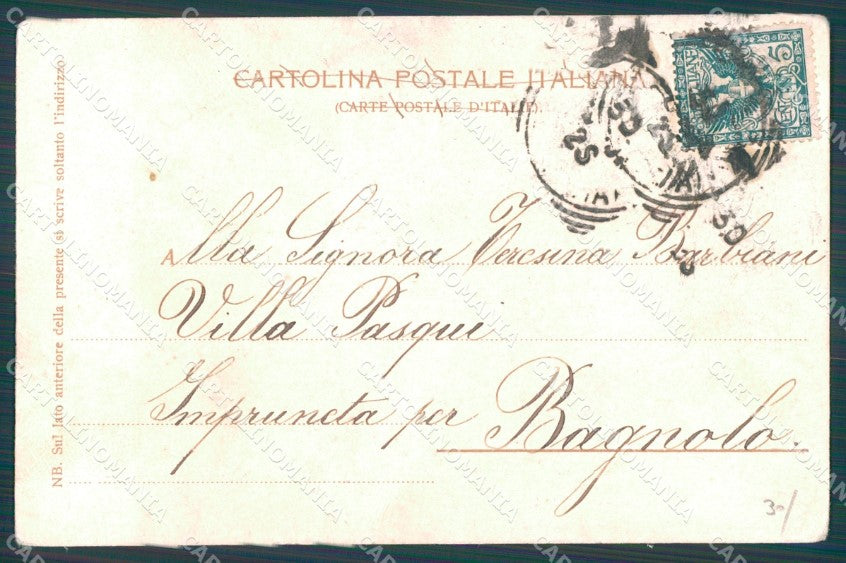 CARTOLINA POSTALE ITALIANA
(CARTE POSTALE D'ITALIE).
NB. Sul lato anteriore della presente si scrive soltanto l'indirizzo.
Alla Signora Teresina Barbiani
Villa Pasqui
Impruneta per Bagnolo.
CARTOLINOMANIA
30
25
30
5